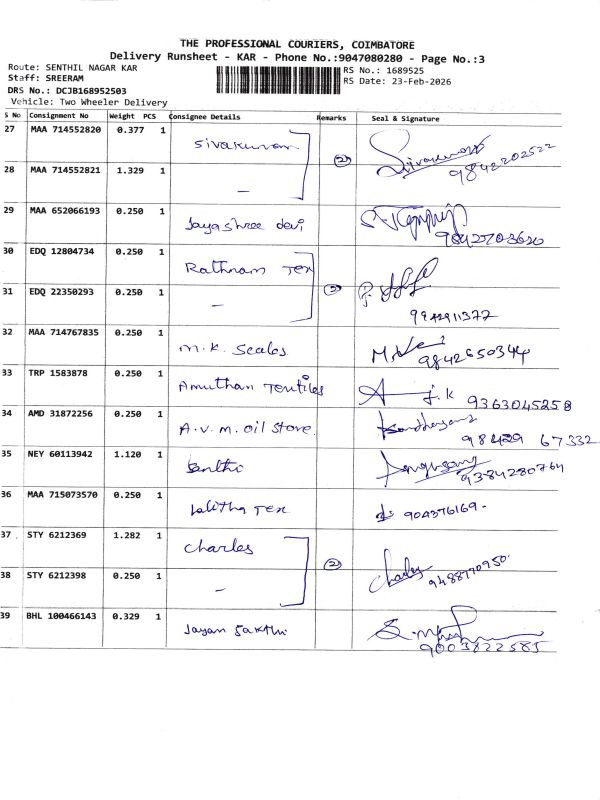 THE PROFESSIONAL COURIERS, COIMBATORE
Delivery Runsheet - KAR - Phone No.:9047080280 - Page No.:3
Route: SENTHIL NAGAR KAR
RS No.: 1689525
Staff: SREERAM
RS Date: 23-Feb-2026
DRS No.: DCJB168952503
Vehicle: Two Wheeler Delivery
S No Consignment No Weight PCS Consignee Details Remarks Seal & Signature
27 MAA 714552820 0.377 1 Sivakumar (2) Sivakumar 9842202522
28 MAA 714552821 1.329 1 -
29 MAA 652066193 0.250 1 Jayashree devi
30 EDQ 12804734 0.250 1 Rathnam Tex (2)
31 EDQ 22350293 0.250 1 - 9942911377
32 MAA 714767835 0.250 1 M.K. Scales 9842650344
33 TRP 1583878 0.250 1 Amuthan Textiles J.K 9363045258
34 AMD 31872256 0.250 1 A.V.M. oil Store. 98429 67332
35 NEY 60113942 1.120 1 9384280764
36 MAA 715073570 0.250 1 Lalitha Tex 904376169-
37 STY 6212369 1.282 1 Charles (2) Charles 9488770950
38 STY 6212398 0.250 1 -
39 BHL 100466143 0.329 1 Jayam Sakthi 9003822585